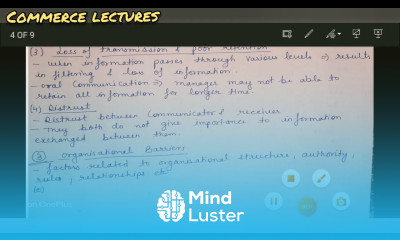 COMMERCE LECTURES
4 OF 9
(3) Loss of transmission & poor retention
- when information passes through various levels ⇒ results
in filtering & loss of information
- oral communication ⇒ manager may not be able to
retain all information for longer time.
(4) Distrust
- Distrust between communicator & receiver
- They both do not give importance to information
exchanged between them.
(3) organisational Barriers
- factors related to organisational structure, authority,
rules, relationships etc
Mind
Luster